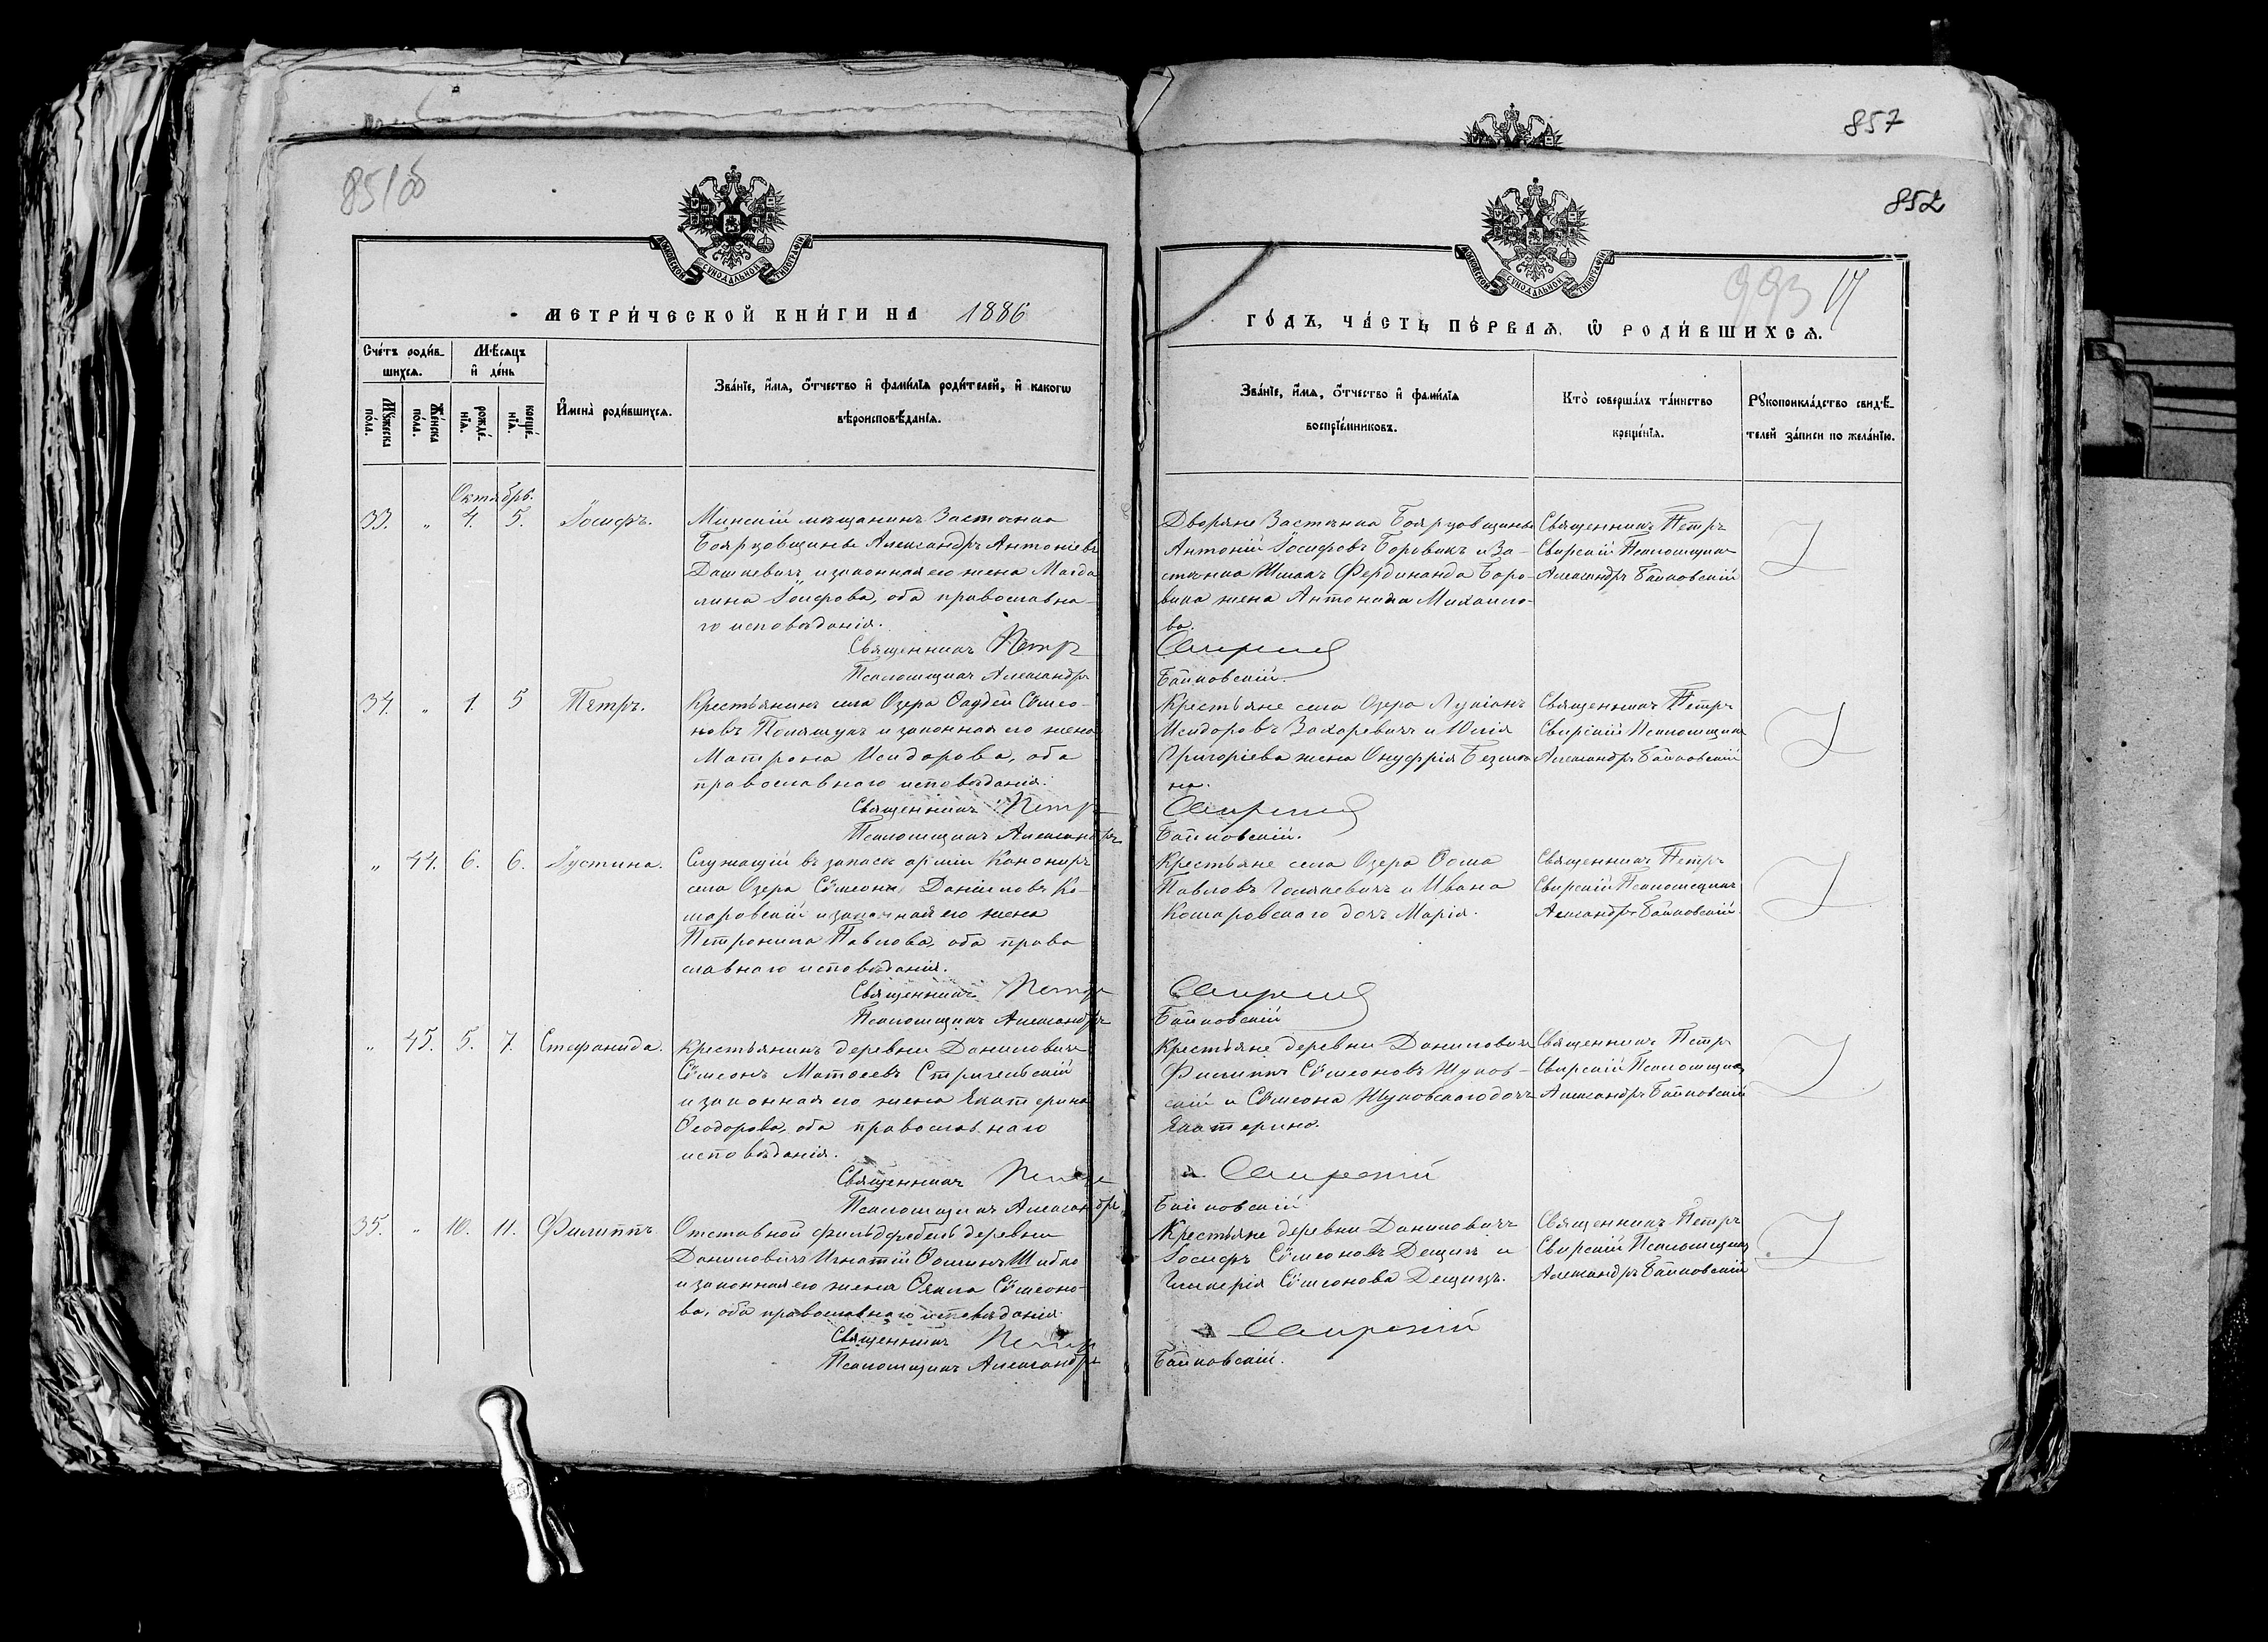 857
851об
852
МОСКОВСКОЙ СУНОДАЛЬНОЙ ТИПОГРАФІИ
МОСКОВСКОЙ СУНОДАЛЬНОЙ ТИПОГРАФІИ
993 17
МЕТРИ́ЧЕСКОЙ КНИ́ГИ НА 1886
ГО́ДЪ, ЧА́СТЬ ПЕ́РВАѦ, Ѡ҆ РОДИ́ВШИХСѦ.
Сче́тъ роди́в-
шихсѧ.
Мѣ́сѧцъ
и҆ де́нь
Мꙋ́жеска
по́ла.
Же́нска
по́ла.
рожде́-
нїѧ.
креще́-
нїѧ.
И҆мена̀ роди́вшихсѧ.
Зва́нїе, и҆́мѧ, ѻ҆́тчество и҆ фами́лїѧ роди́телей, и҆ како́гѡ
вѣроисповѣ́данїѧ.
Зва́нїе, и҆́мѧ, ѻ҆́тчество и҆ фами́лїѧ
воспрїе́мниковъ.
Кто̀ соверша́лъ та́инство
креще́нїѧ.
Рꙋкоприкла́дство свидѣ́-
телей за́писи по жела́нїю.
Октябрь.
33. „ 4. 5. Іосифъ.
Минскій мѣщанинъ Застѣнка
Боярцовщины Александръ Антоніевъ
Дашкевичъ и законная его жена Магда
лина Іосифова, оба православна-
го исповѣданія.
Священникъ Петръ
Псаломщикъ Александръ
Дворяне Застѣнка Боярцовщины
Антоній Іосифовъ Боровикъ и За-
стѣнка Фердинанда Боро-
вика жена Антонина Михаило-
ва.
Свирскій
Байковскій.
Священникъ Петръ
Свирскій Псаломщикъ
Александръ Байковскій
34. „ 1. 5 Петръ.
Крестьянинъ села Озера Ѳаддей Сѵмео-
новъ Полящукъ и законная его жена
Матрона Исидорова, оба
православнаго исповѣданія.
Священникъ Петръ
Псаломщикъ Александръ
Крестьяне села Озера Лукіанъ
Исидоровъ Захаревичъ и Юлія
Григоріева жена Онуфрія
на.
Свирскій
Байковскій.
Священникъ Петръ
Свирскій Псаломщикъ
Александръ Байковскій
„ 44. 6. 6. Іустина.
Служащій въ запасѣ арміи Канониръ
села Озера Сѵмеонъ Даніиловъ Ко-
шаровскій и законная его жена
Петронила Павлова, оба право
славнаго исповѣданія.
Священникъ Петръ
Псаломщикъ Александръ
Крестьяне села Озера Ѳома
Павловъ Голякевичъ и Ивана
Кошаровскаго дочь Марія.
Свирскій
Байковскій
Священникъ Петръ
Свирскій Псаломщикъ
Александръ Байковскій.
„ 45. 5. 7. Стефанида.
Крестьянинъ деревни Даниловичъ
Сѵмеонъ Матѳеевъ Стригельскій
и законная его жена Екатерина
Ѳеодорова, оба православнаго
исповѣданія.
Священникъ Петръ
Псаломщикъ Александръ
Крестьяне деревни Даниловичъ
Филиппъ Сѵмеоновъ Жуков-
скій и Сѵмеона Жуковскаго дочь
Екатерина.
Свирскій
Байковскій
Священникъ Петръ
Свирскій Псаломщикъ
Александръ Байковскій
35. „ 10. 11. Филиппъ.
Отставной фельдфебель деревни
Даниловичъ Игнатій Ѳоминъ Шибко
и законная его жена Ѳекла Сѵмеоно-
ва, оба православнаго исповѣданія.
Священникъ Петръ
Псаломщикъ Александръ
Крестьяне деревни Даниловичъ
Іосифъ Сѵмеоновъ Дещицъ и
Гликерія Сѵмеонова Дещицъ.
Свирскій
Байковскій.
Священникъ Петръ
Свирскій Псаломщикъ
Александръ Байковскій